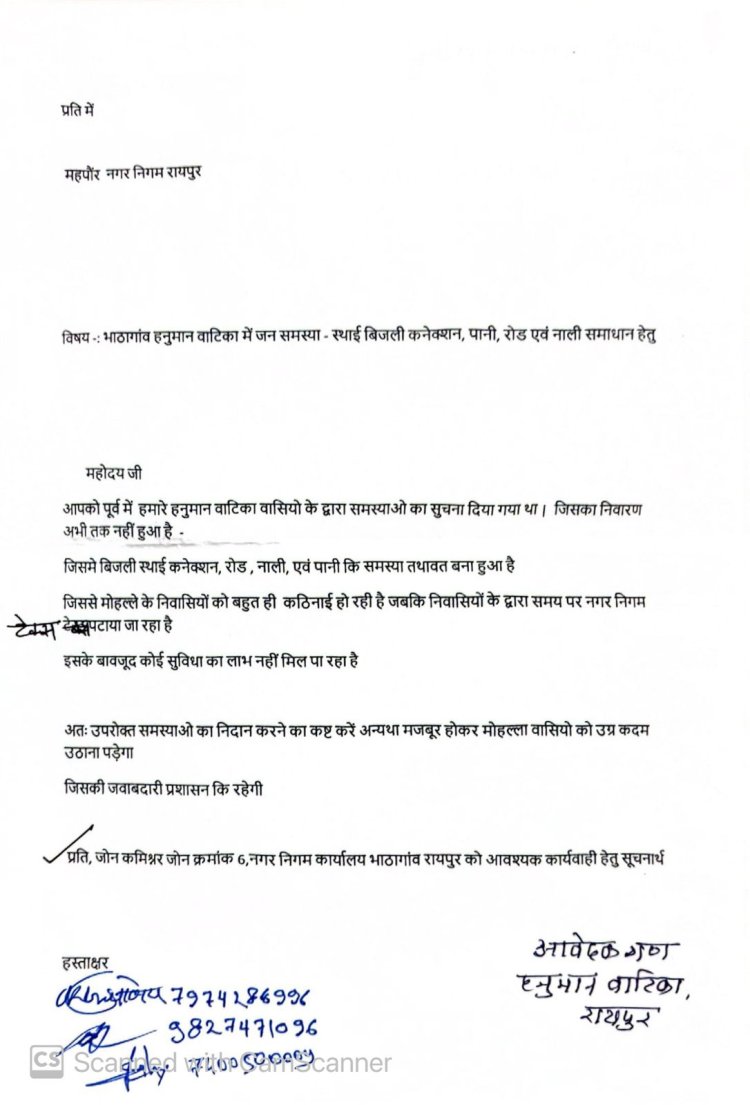 प्रति में
महपौंर नगर निगम रायपुर
विषय -: भाठागांव हनुमान वाटिका में जन समस्या - स्थाई बिजली कनेक्शन, पानी, रोड एवं नाली समाधान हेतु
महोदय जी
आपको पूर्व में हमारे हनुमान वाटिका वासियो के द्वारा समस्याओ का सुचना दिया गया था | जिसका निवारण
अभी तक नहीं हुआ है -
जिसमे बिजली स्थाई कनेक्शन, रोड , नाली, एवं पानी कि समस्या तथावत बना हुआ है
जिससे मोहल्ले के निवासियों को बहुत ही कठिनाई हो रही है जबकि निवासियों के द्वारा समय पर नगर निगम
टेक्स पटाया जा रहा है
इसके बावजूद कोई सुविधा का लाभ नहीं मिल पा रहा है
अतः उपरोक्त समस्याओ का निदान करने का कष्ट करें अन्यथा मजबूर होकर मोहल्ला वासियो को उग्र कदम
उठाना पड़ेगा
जिसकी जवाबदारी प्रशासन कि रहेगी
प्रति, जोन कमिश्नर जोन क्रमांक 6,नगर निगम कार्यालय भाठागांव रायपुर को आवश्यक कार्यवाही हेतु सूचनार्थ
हस्ताक्षर
आवेदक गण
हनुमान वाटिका,
रायपुर
7974286996
9827471096
CS Scanned with CamScanner